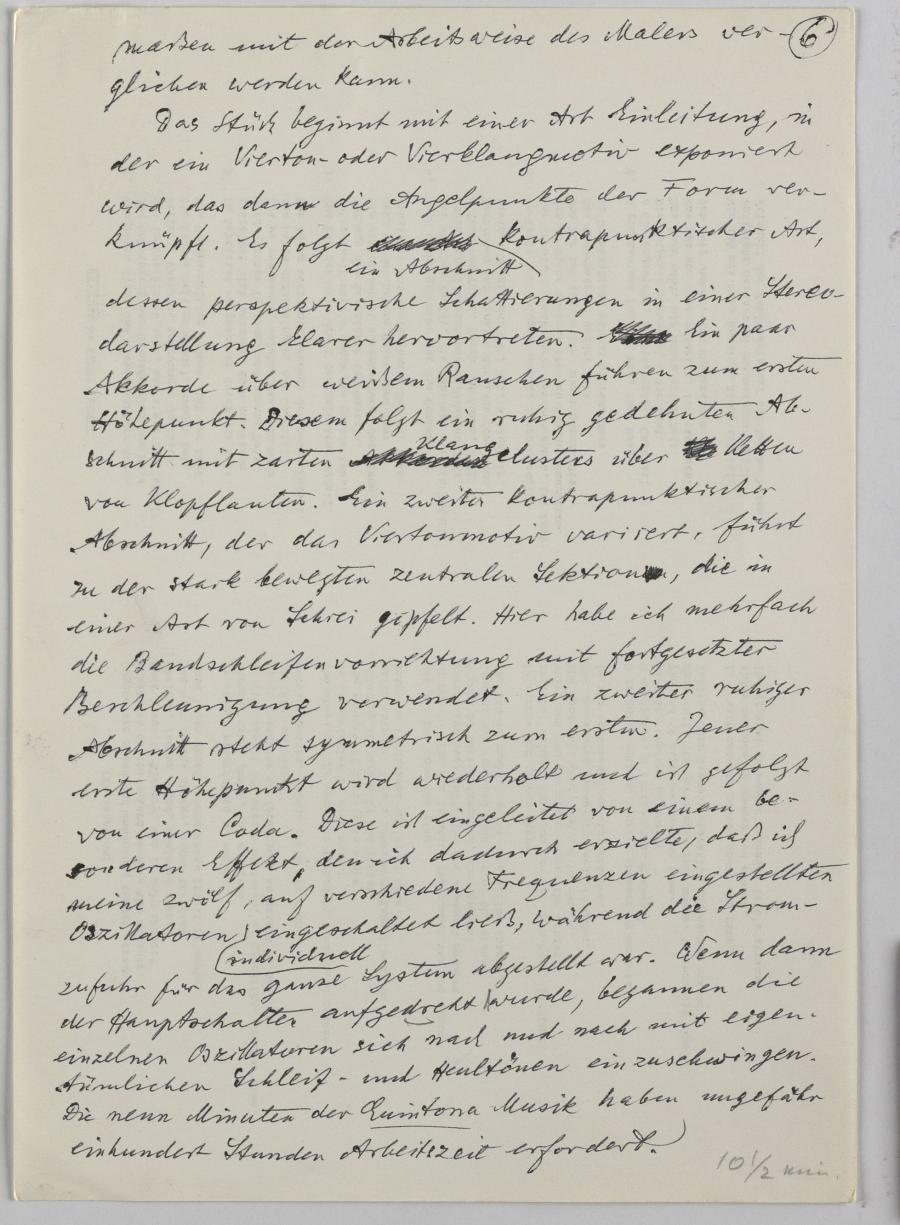 6
maßen mit der Arbeitsweise des Malers ver-
glichen werden kann.
Das Stück beginnt mit einer Art Einleitung, in
der ein Vierton- oder Vierklangmotiv exponiert
wird, das dann die Angelpunkte der Form ver-
knüpft. Es folgt kontrapunktischer Art,
ein Abschnitt
dessen perspektivische Schattierungen in einer Stereo-
darstellung klarer hervortreten. Ein paar
Akkorde über weißem Rauschen führen zum ersten
Höhepunkt. Diesem folgt ein ruhig gedehnter Ab-
schnitt mit zarten clusters über Ketten
Klang
von Klopflauten. Ein zweiter kontrapunktischer
Abschnitt, der das Viertonmotiv variiert, führt
zu der stark bewegten zentralen Sektion, die in
einer Art von Schrei gipfelt. Hier habe ich mehrfach
die Bandschleifenvorrichtung mit fortgesetzter
Beschleunigung verwendet. Ein zweiter ruhiger
Abschnitt steht symmetrisch zum ersten. Jener
erste Höhepunkt wird wiederholt und ist gefolgt
von einer Coda. Diese ist eingeleitet von einem be-
sonderen Effekt, den ich dadurch erzielte, daß ich
meine zwölf, auf verschiedene Frequenzen eingestellten
Oszillatoren eingeschaltet ließ, während die Strom-
individuell
zufuhr für das ganze System abgestellt war. Wenn dann
der Hauptschalter aufgedreht wurde, begannen die
einzelnen Oszillatoren sich nach und nach mit eigen-
tümlichen Schleif- und Heultönen einzuschwingen.
Die neun Minuten der Quintona Musik haben ungefähr
einhundert Stunden Arbeitszeit erfordert.
10 1/2 min.